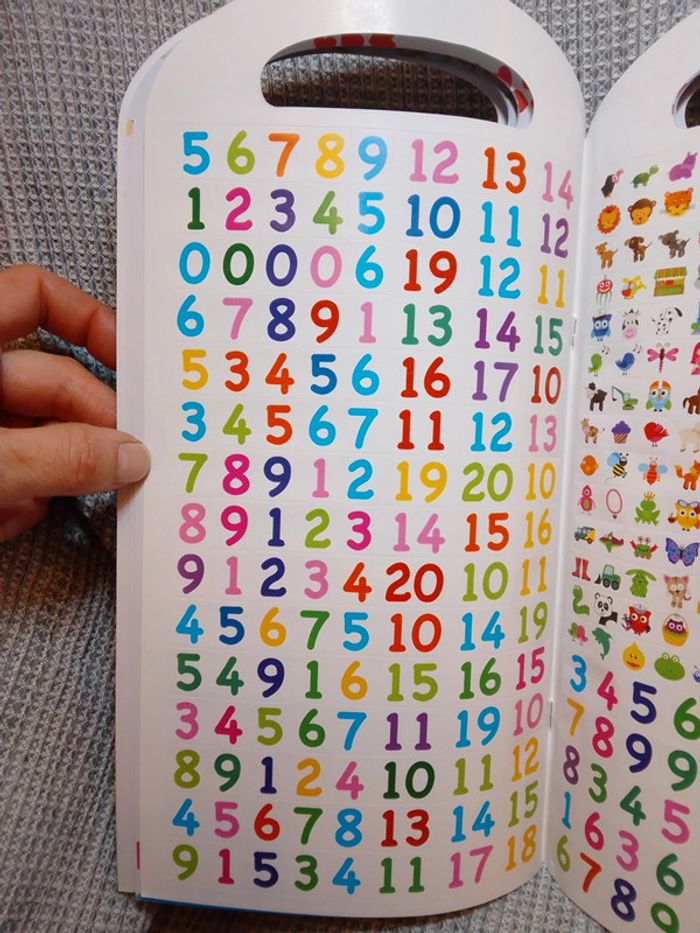 5 6 7 8 9 12 13 14
1 2 3 4 5 10 11 12
0 0 0 0 6 19 12 11
6 7 8 9 1 13 14 15
5 3 4 5 6 16 17 10
3 4 5 6 7 11 12 13
7 8 9 1 2 19 20 10
8 9 1 2 3 14 15 16
9 1 2 3 4 20 10 11
4 5 6 7 5 10 14 19
5 4 9 1 6 15 16 15
3 4 5 6 7 11 19 10
8 9 1 2 4 10 11 12
4 5 6 7 8 13 14 15
9 1 5 3 4 11 17 18
3 4 5 6
7 8 9 9
8 3 4 5
1 6 3 6
6 7 8 0